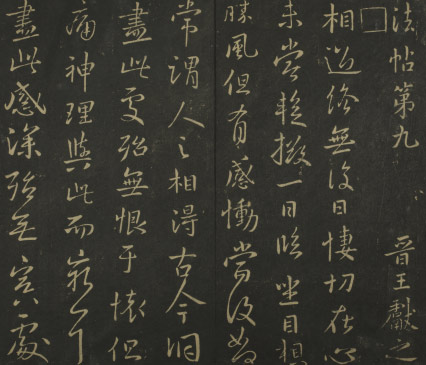 法帖第九 晉王獻之
相過終無復日悽切在心
未嘗蹔撥一日臨坐目想
勝風但有感慟當復如
常謂人之相得古今洞
盡此處殆無恨于懷但
痛神理與此而窮耳
盡此感深殆無冥處